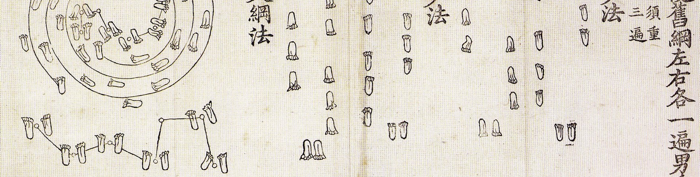 舊綱左右各一遍男
須重
三遍
法
法
綱法